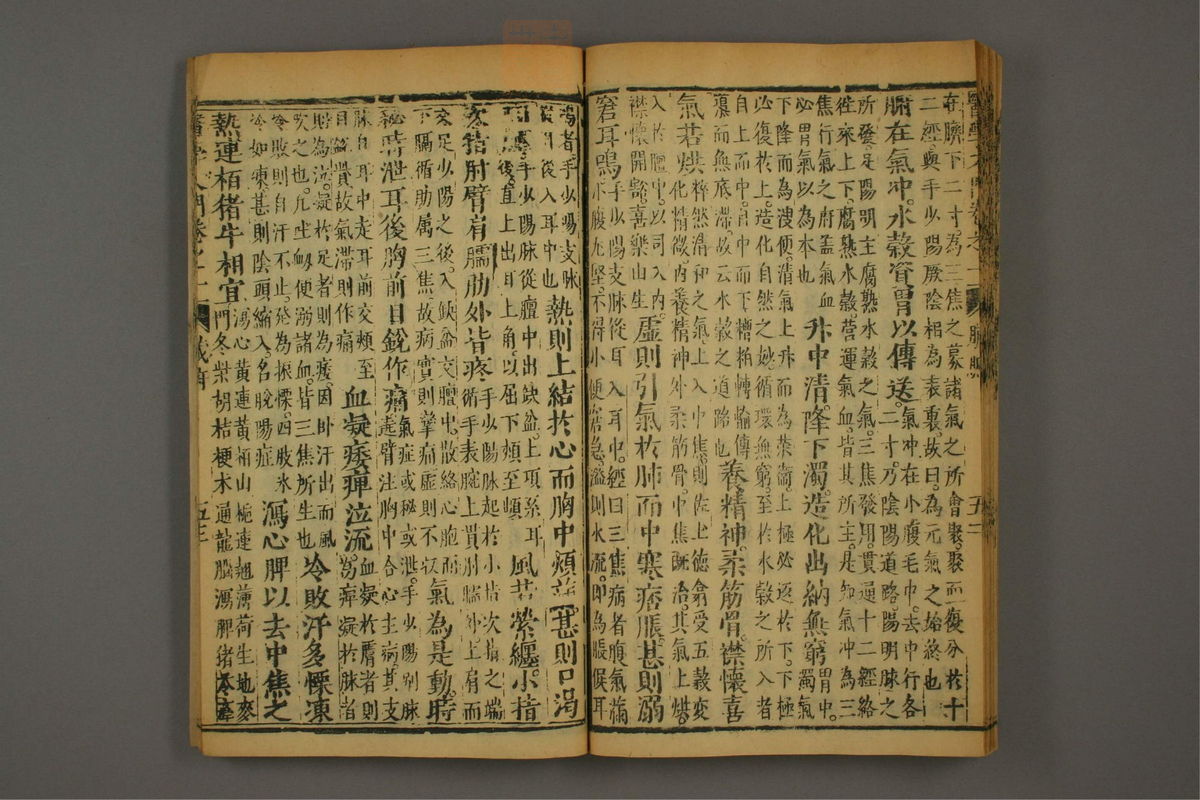 在臍下二寸為三焦之募諸氣之所會聚聚而復分於十
二經與手少陽厥陰相為表裏故曰為元氣之始終也
腑在氣冲。水穀資胃以傳送。
氣冲在小腹毛中去中行各
二寸乃陰陽道路陽明脉之
所發足陽明主腐熟水穀之氣三焦發用貫通十二經絡
徃來上下腐熟水穀營運氣血皆其所主是知氣冲為三
焦行氣之府盖氣血
必以胃氣以為本也
升中清。降下濁。造化出納無窮
胃中
濁氣
下降而為溲便清氣上升而為榮衛上極必返於下下極
必復於上造化自然之妙循環無窮至於水穀之所入者
自上而中自中而下糟粕轉輸傳
道而無底滯故云水穀之道路也
養精神。柔筋骨。襟懷喜
氣若烘
粹然清和之氣上入中焦則佐上德翕受五穀變
化精微內養精神外柔筋骨中焦既治其氣上烘
入於膻中以司入內
襟懷開豁喜樂由生
虛則引氣於肺而中寒痞脹。甚則溺
窘耳鳴
手少陽支脉從耳入耳中經曰三焦病者腹氣滿
小腹尤堅不得小便窘急溢則水流即為脹候耳
鳴者手少陽支脉
從耳後入耳中也
熱則上結於心而胸中煩滿。甚則口渴
咽腫
手少陽脉從膻中出缺盆上項系耳
後直上出耳上角以屈下頰至䪼
風若縈纏。小指
次指肘臂肩臑肋外皆疼
手少陽脉起於小指次指之端
循手表腕上貫肘臑外上肩而
交足少陽之後入缺盆交膻中散絡心胞而
下膈循肋属三焦故病實則攣痛虛則不收
氣為是動。時
秘時泄耳後胸前目銳作痛
氣症或秘或泄手少陽別脉
遶臂注胸中合心主病其支
脉自耳中走耳前交頰至
目銳眥故氣滯則作痛
血凝痿痺泣流
血凝於膚者則
為痺凝於脉者
則為泣凝於足者則為痿因卧汗出而風
吹之也凢衂便溺諸血皆三焦所生也
冷敗汗多慄凍
冷敗則自汗不止發為振慄四肢氷
冷如痺甚則陰頭縮入名脫陽症
瀉心脾以去中焦之
熱連栢猪牛相宜
瀉心黃連黃栢山梔連翹薄荷生地麥
門冬柴胡桔梗木通龍腦瀉脾猪
醫學入門卷之一